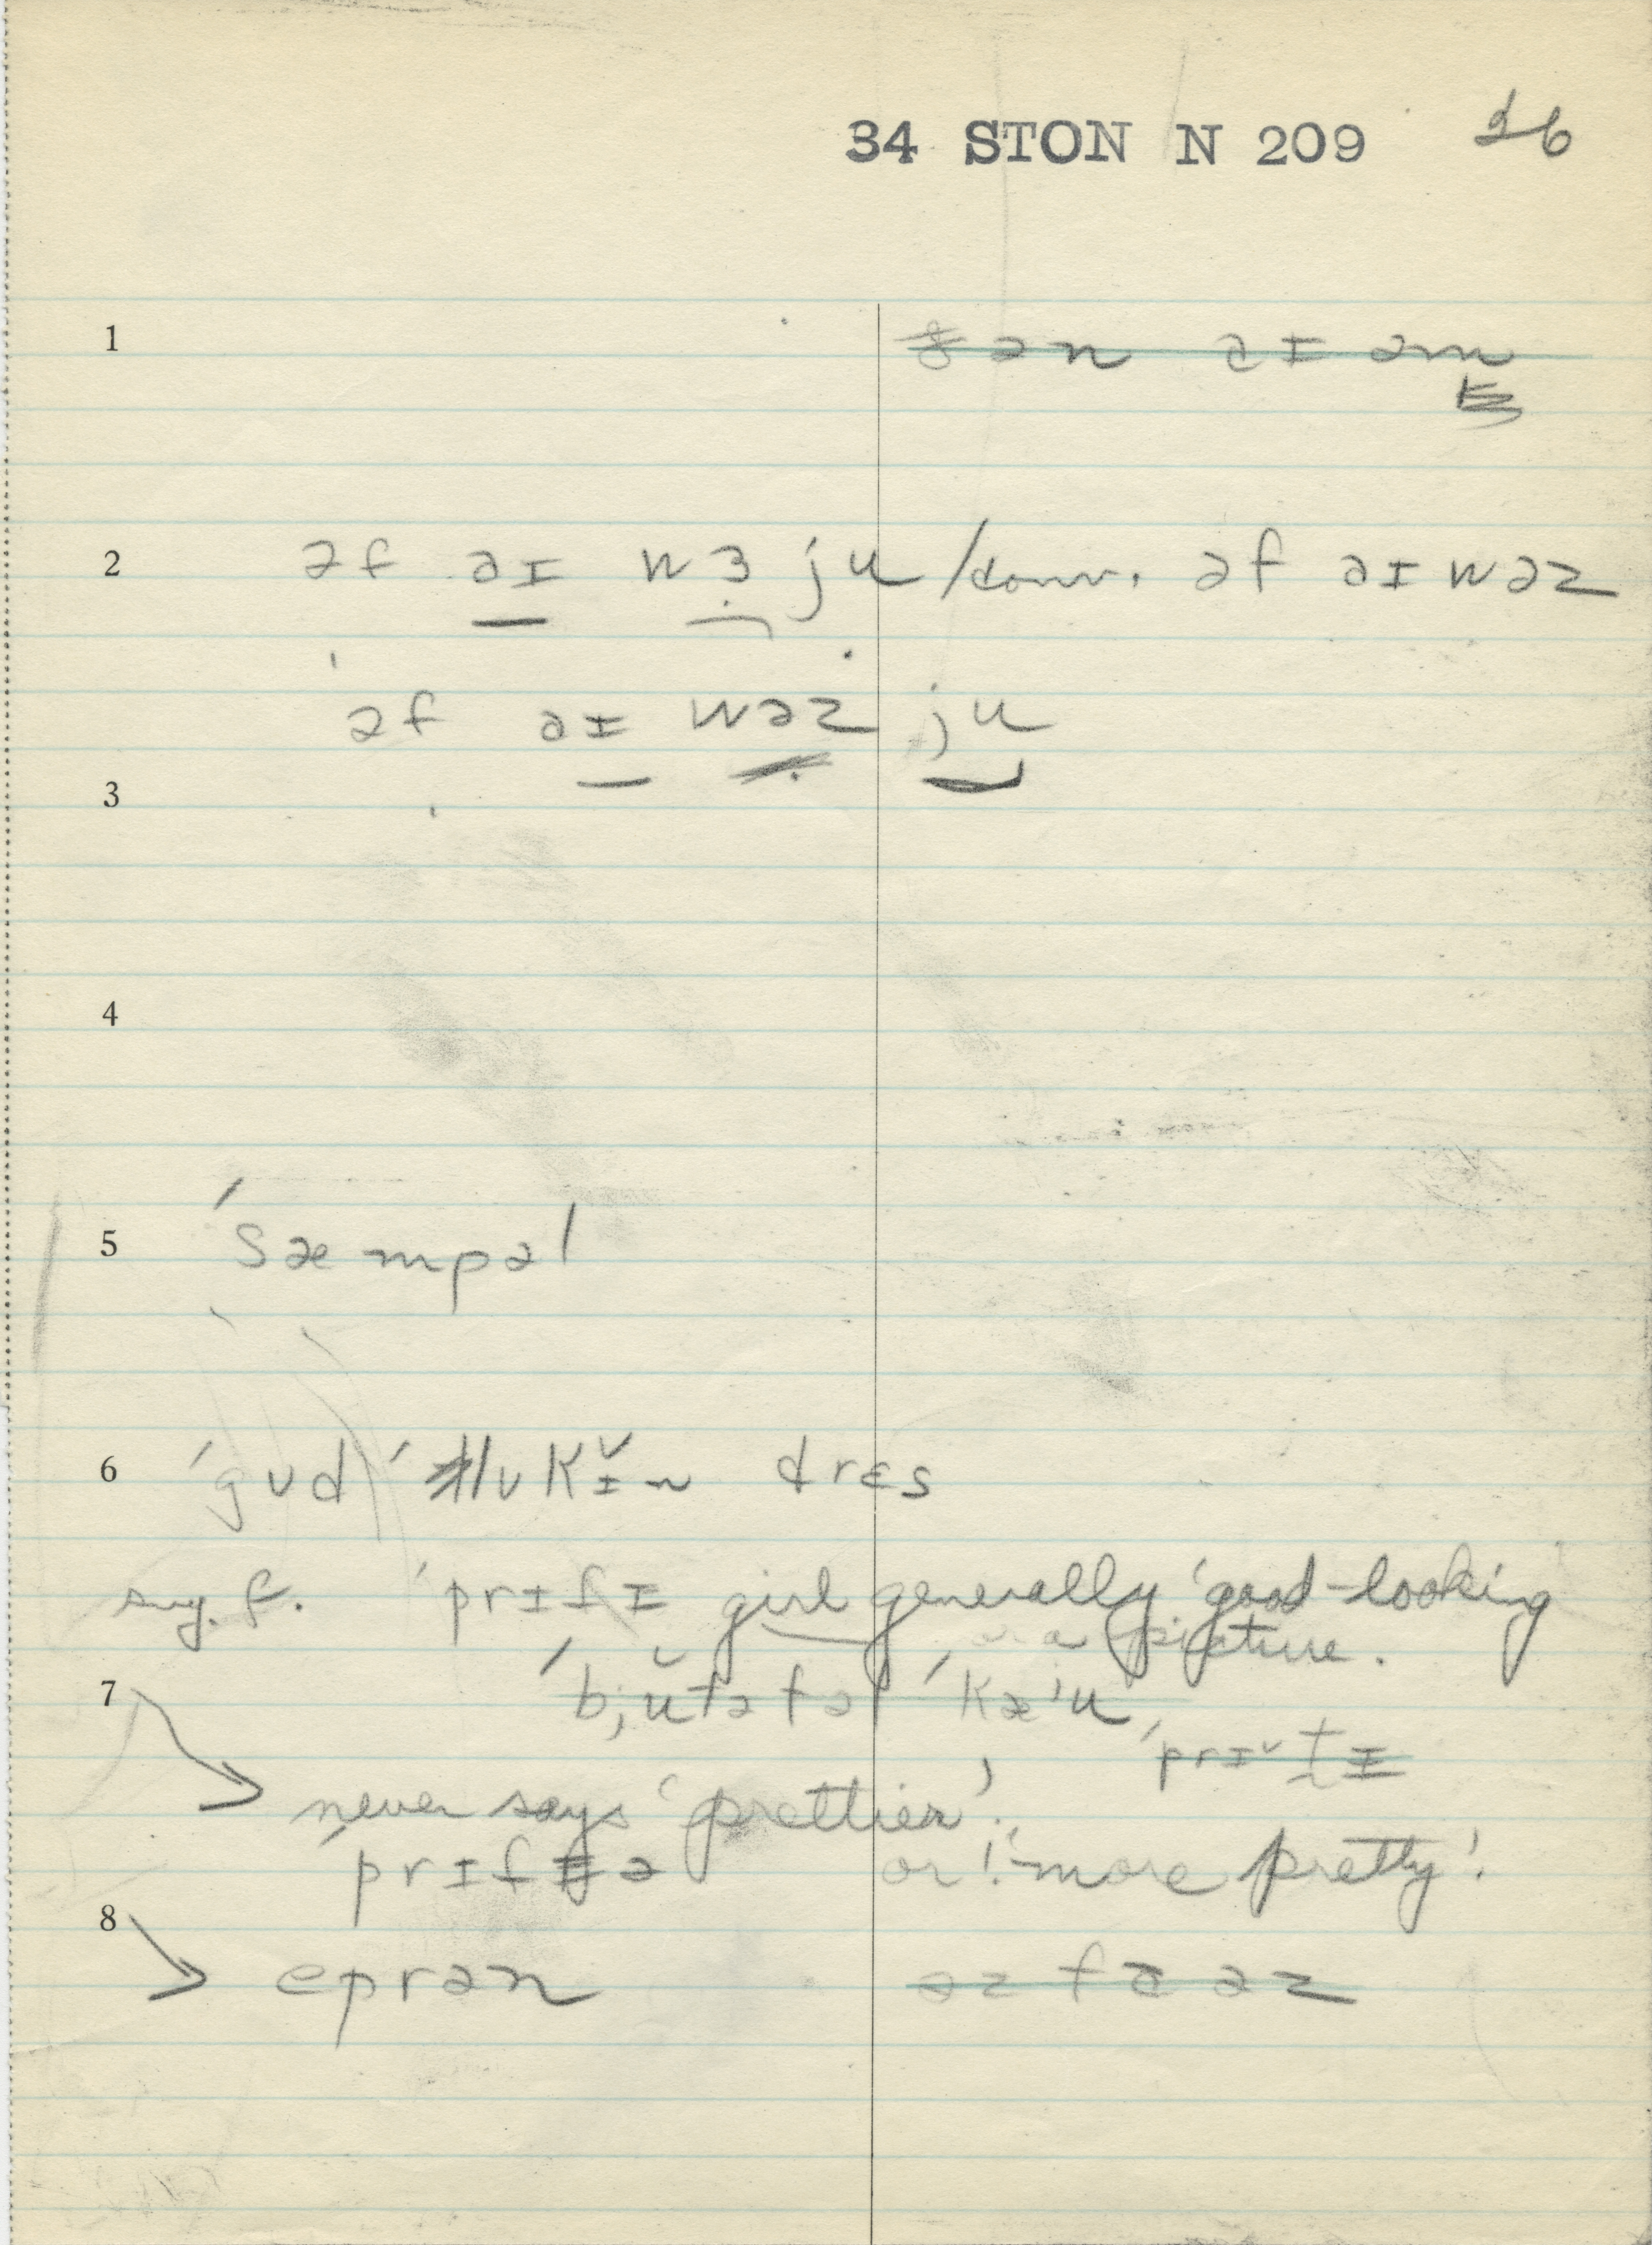 34 STON N 209 16
1 ən aɪ əm
2 əf aɪ wɜ ju / conv. əf aɪ wəz
əf aɪ wəz ju
3
4
5 ˈsæmpəl
6 ˈgʊd ˈlʊkɪ̌n drɛs
sug. f. ˈprɪfɪ girl generally 'good-looking
or a picture.
7 ˈbjŭtəfəl ˈkæʼu,
ˈprɪˇtɪ
never says 'prettier'.
ˈprɪfə or 'more pretty'.
8 eprən əz fɑ əz